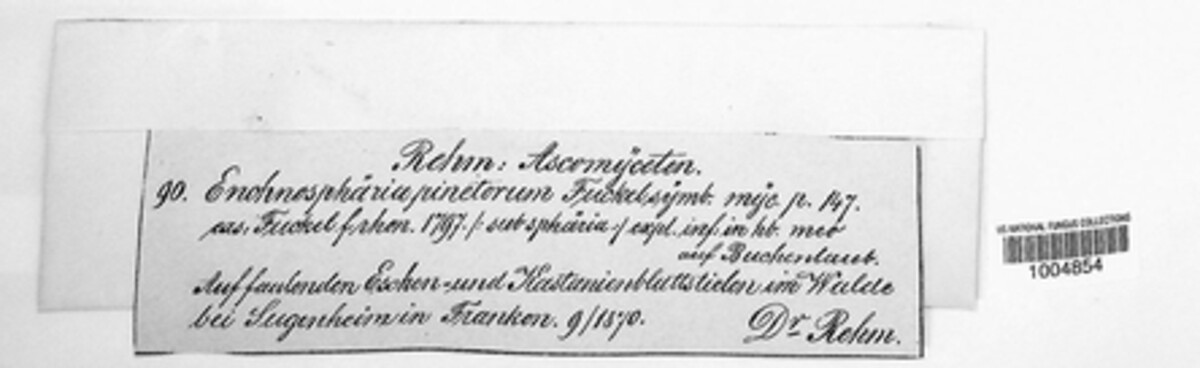 Rehm: Ascomÿceten.
90. Enchnosphäria pinetorum Fuckel sÿmb. mÿc. p. 147.
exs. Fuckel f. rhen. 1797. /: sub sphäria :/ expl. inf. in hb. meo
auf Buchenlaub.
Auf faulenden Eschen- und Kastanienblattstielen im Walde
bei Sugenheim in Franken. 9/1870.
Dr Rehm.
US NATIONAL FUNGUS COLLECTIONS
1004854